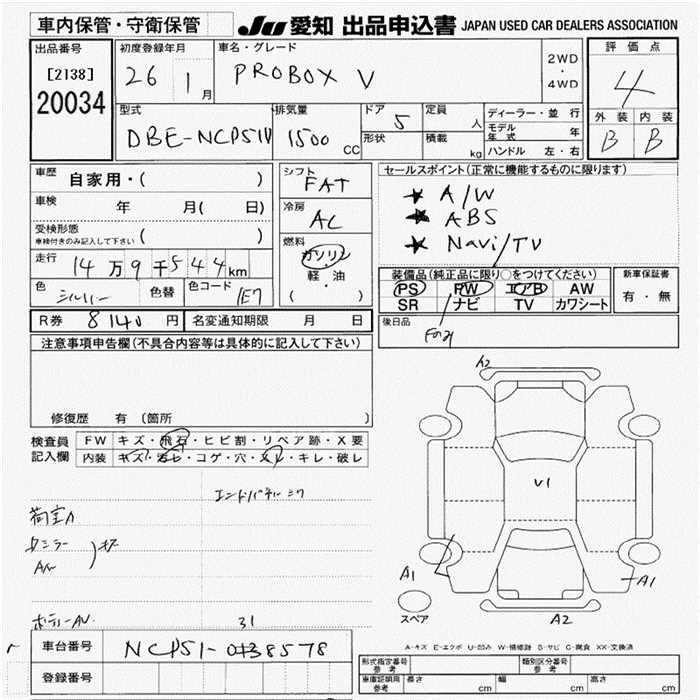 車内保管・守衛保管 JU 愛知 出品申込書 JAPAN USED CAR DEALERS ASSOCIATION
出品番号 初度登録年月 車名・グレード 評価点
[2138] 26 1月 PROBOX V 2WD・4WD 4
20034
型式 排気量 ドア 定員 ディーラー・並行 外装 内装
DBE-NCP51V 1500CC 5 人 モデル年式 年 B B
形状 積載 kg ハンドル 左・右
車歴 自家用・( ) シフト FAT セールスポイント(正常に機能するものに限ります)
車検 年 月( 日) 冷房 AC ★ A/W
受検形態 ( ) ★ ABS
車検付きのみ記入して下さい 燃料 ガソリン ★ Navi/TV
走行 14万9千544km 軽・油 装備品(純正品に限り○をつけてください) 新車保証書
色 シルバー 色替 色コード 1E7 ( ) PS PW エアB AW 有・無
SR ナビ TV カワシート
R券 8140円 名変通知期限 月 日 後日品
注意事項申告欄(不具合内容等は具体的に記入して下さい)
修復歴 有 (箇所
検査員 FW キズ・飛石・ヒビ割・リペア跡・X要
記入欄 内装 キズ・汚レ・コゲ・穴・スレ・キレ・破レ
A2
U1
荷室
A1 A1
スペア A2
31
A-キズ E-エクボ U-凹み W-補修跡 S-サビ C-腐食 XX-交換済
車台番号 NCP51-0138578 形式指定番号 参考 類別区分番号 参考
登録番号 車庫証明用 参考 長さ cm 幅 cm 高さ cm